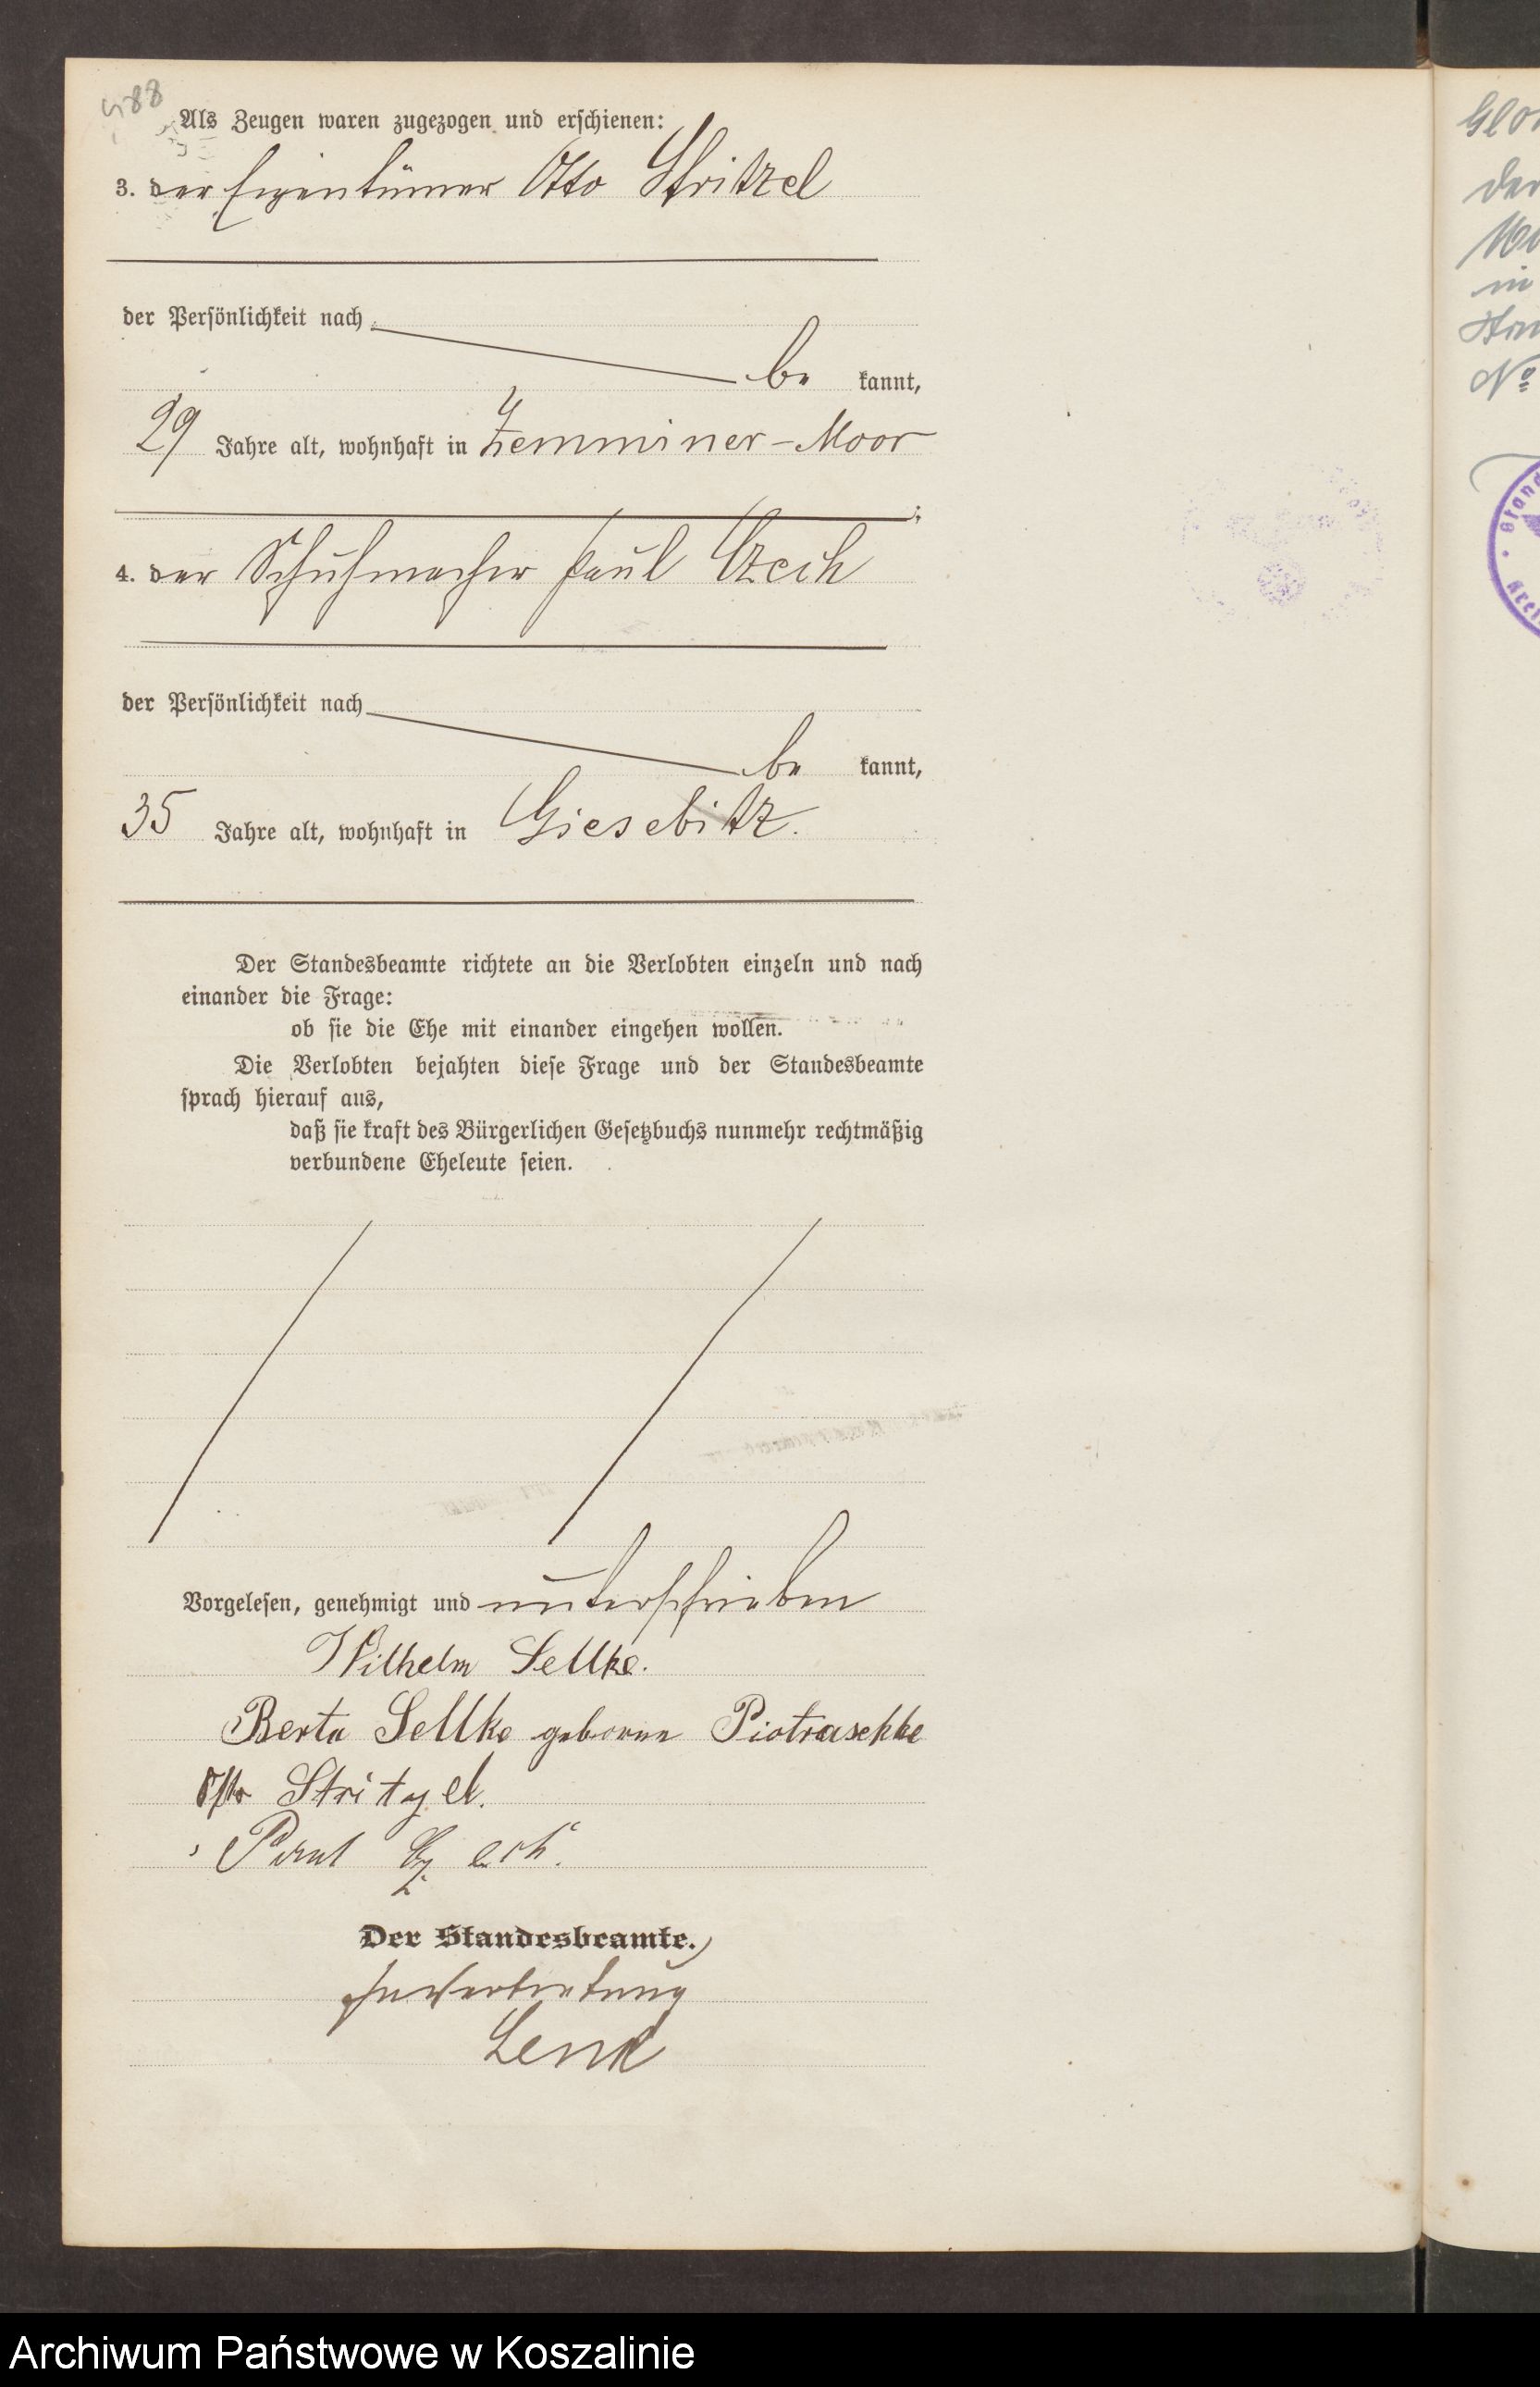 488
Als Zeugen waren zugezogen und erschienen:
3. der Eigentümer Otto Stritzel
der Persönlichkeit nach
be kannt,
29 Jahre alt, wohnhaft in Zemminer-Moor
;
4. der Schuhmacher Paul Czech
der Persönlichkeit nach
be kannt,
35 Jahre alt, wohnhaft in Giesebitz.
Der Standesbeamte richtete an die Verlobten einzeln und nach
einander die Frage:
ob sie die Ehe mit einander eingehen wollen.
Die Verlobten bejahten diese Frage und der Standesbeamte
sprach hierauf aus,
daß sie kraft des Bürgerlichen Gesetzbuchs nunmehr rechtmäßig
verbundene Eheleute seien.
Vorgelesen, genehmigt und unterschrieben
Wilhelm Sellke.
Berta Sellke geborne Piotraschke
Otto Stritzel.
Paul Czech.
Der Standesbeamte.
In Vertretung
Lenk
der
in
No
Archiwum Państwowe w Koszalinie